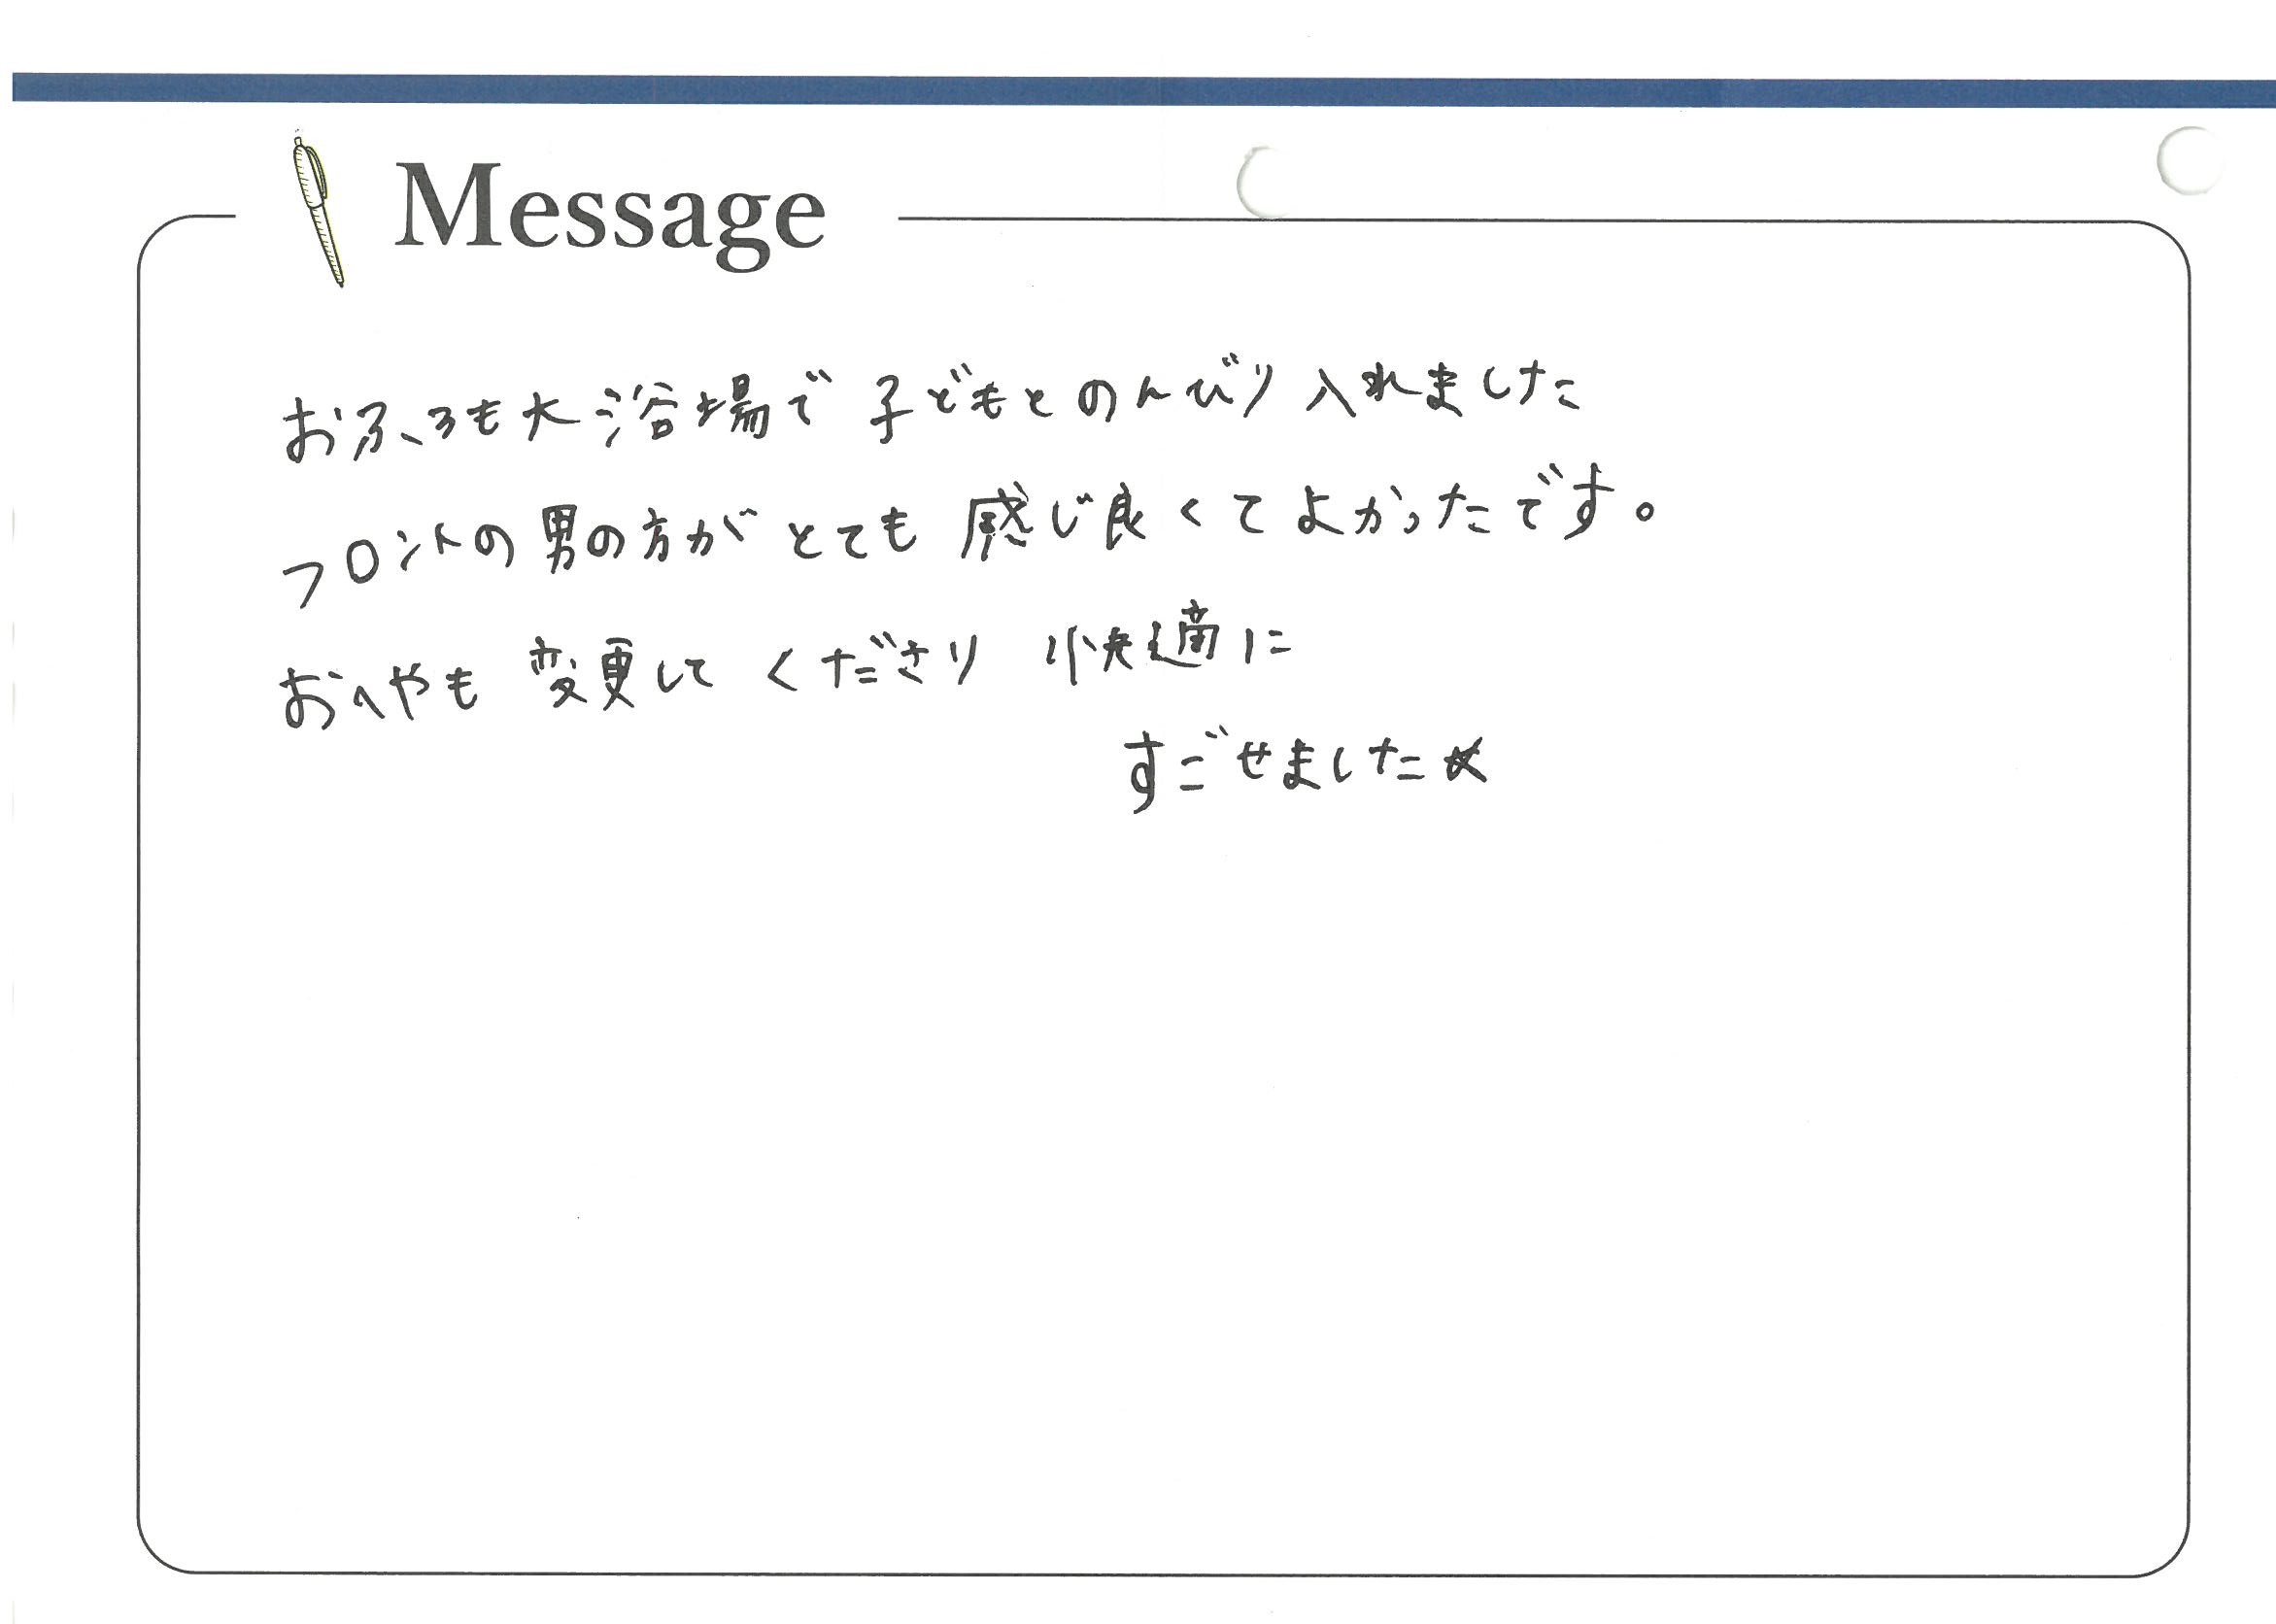 Message
おふろも大浴場で子どもとのんびり入れました
フロントの男の方がとても感じ良くてよかったです。
おへやも変更してくださり 快適に
すごせました☆